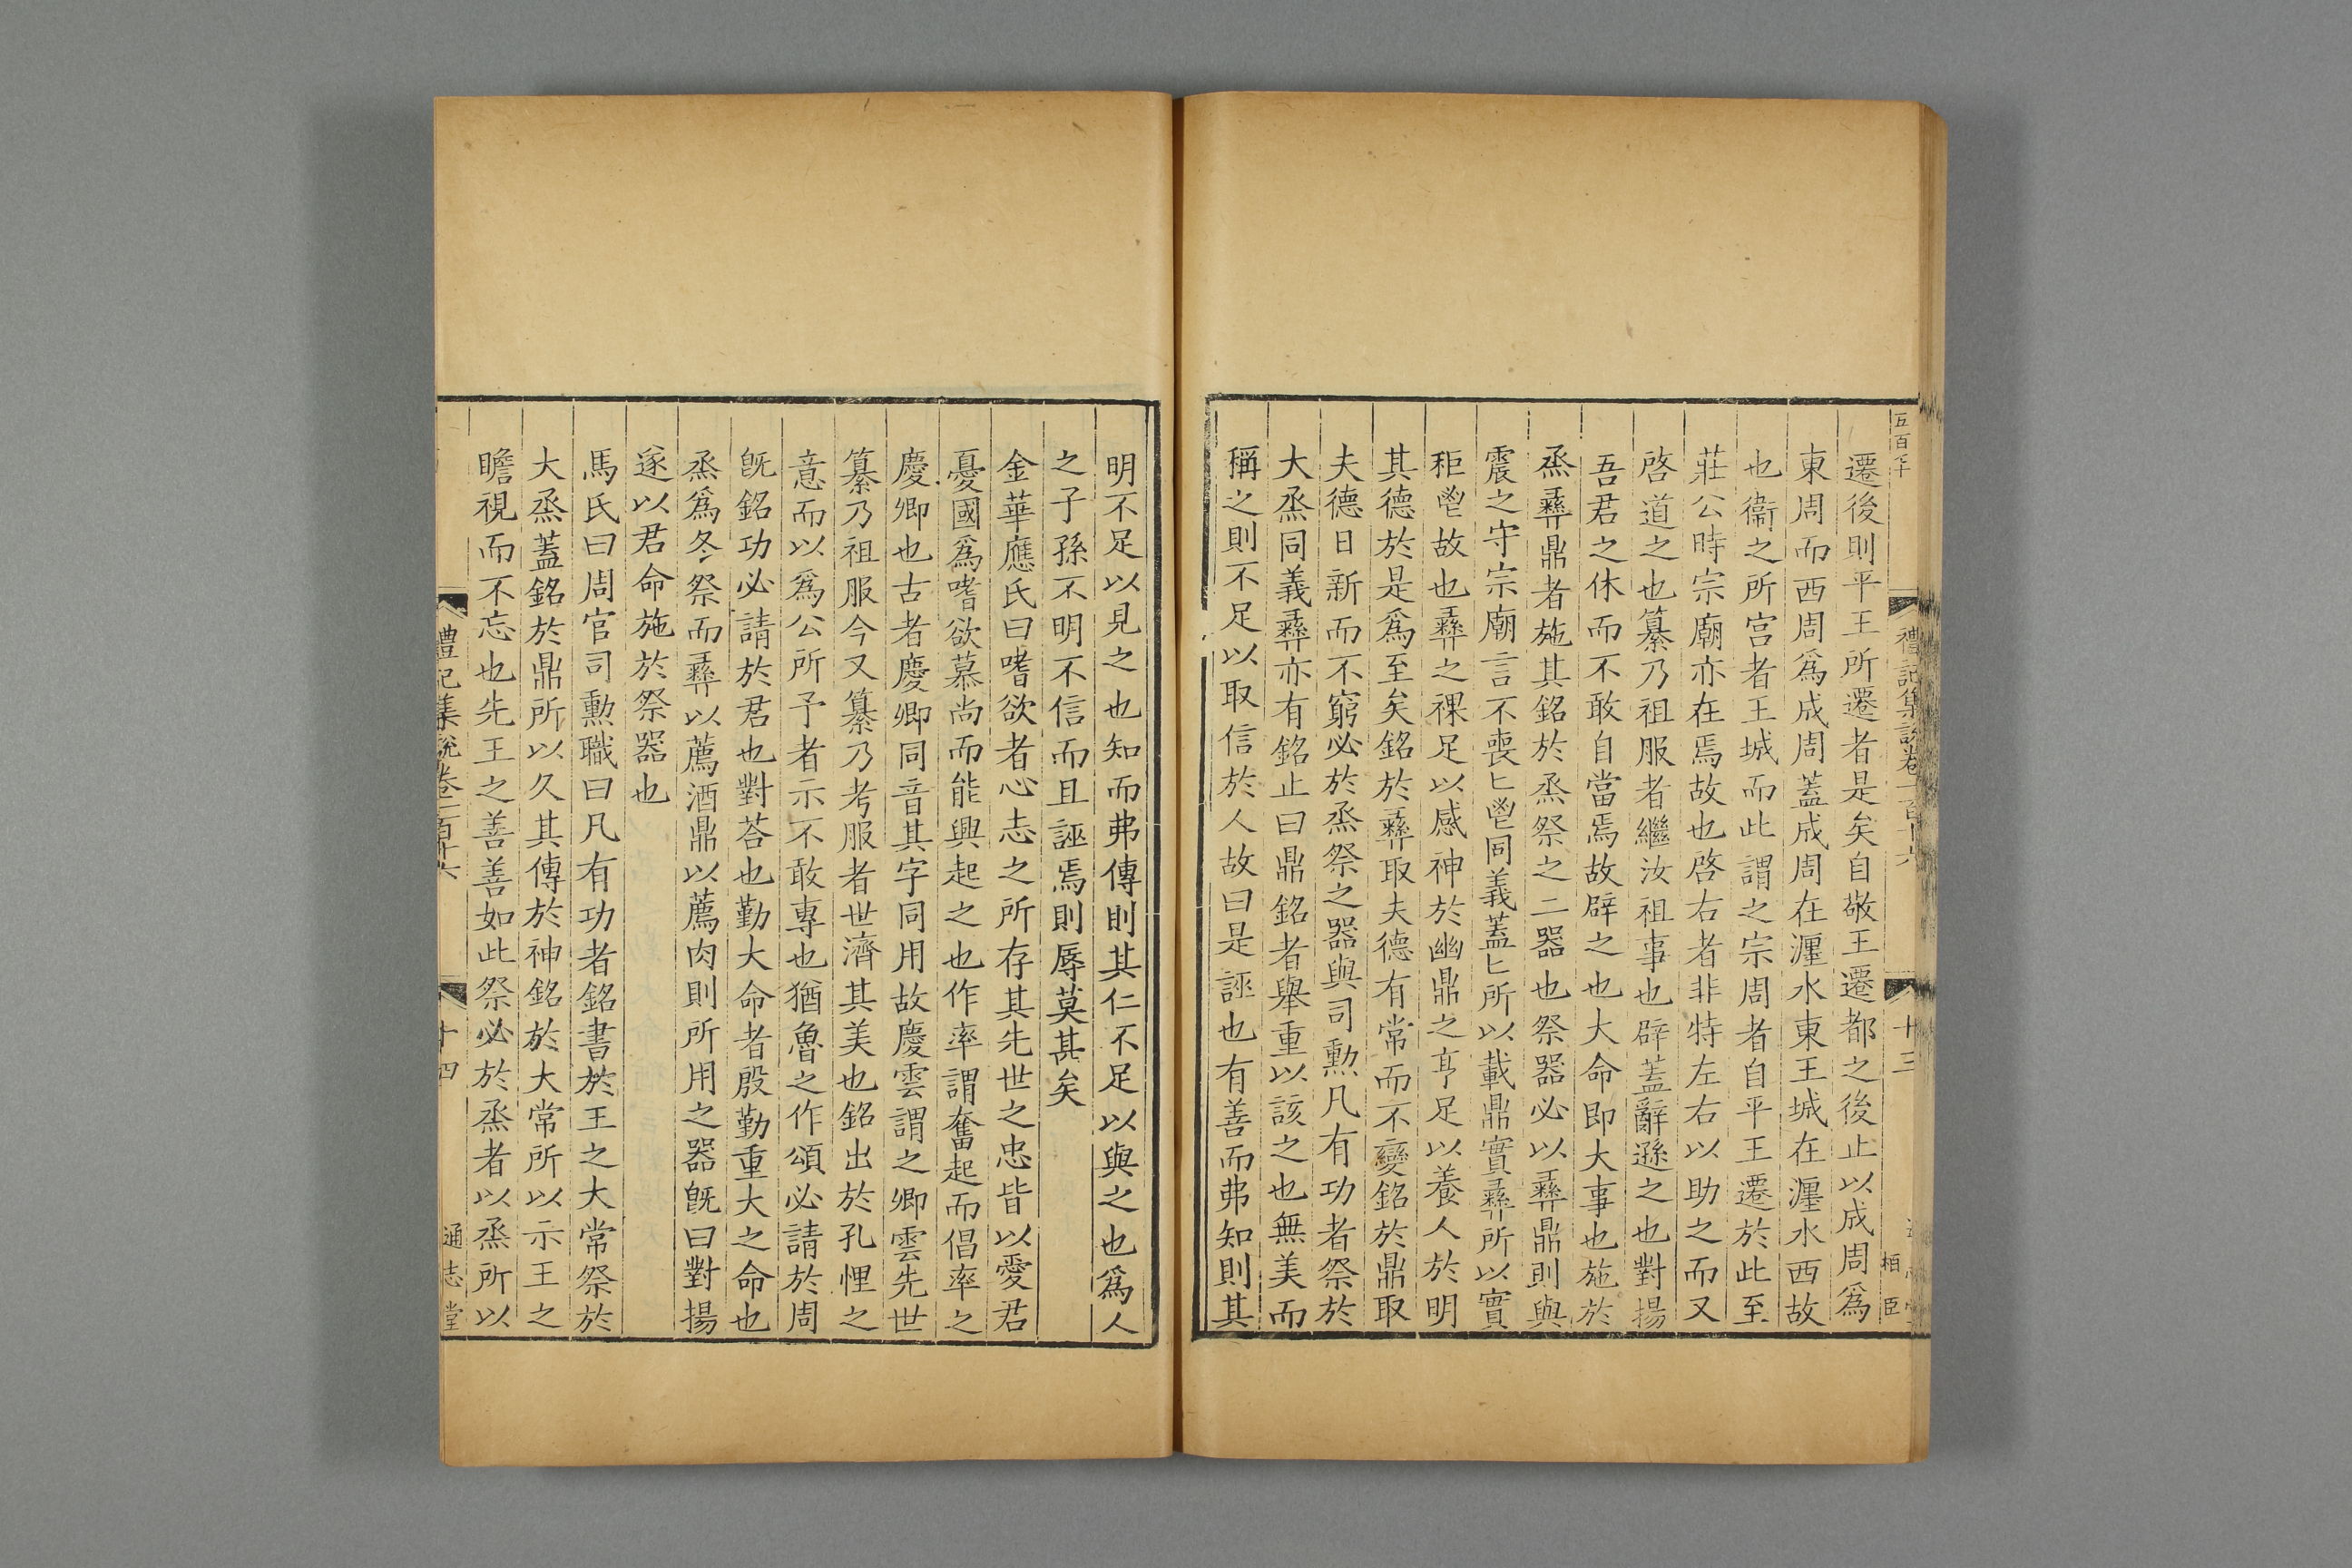 禮記集說卷一百十六
十三
遷後則平王所遷者是矣自敬王遷都之後止以成周爲
東周而西周爲成周蓋成周在瀍水東王城在瀍水西故
也衞之所宫者王城而此謂之宗周者自平王遷於此至
莊公時宗廟亦在焉故也啓右者非特左右以助之而又
啓道之也纂乃祖服者繼汝祖事也辟蓋辭遜之也對揚
吾君之休而不敢自當焉故辟之也大命即大事也施於
烝彝鼎者施其銘於烝祭之二器也祭器必以彝鼎則與
震之守宗廟言不喪匕鬯同義蓋匕所以載鼎實彝所以實
秬鬯故也彝之祼足以感神於幽鼎之亨足以養人於明
其德於是爲至矣銘於彝取夫德有常而不變銘於鼎取
夫德日新而不窮必於烝祭之器與司勲凡有功者祭於
大烝同義彝亦有銘止曰鼎銘者舉重以該之也無美而
稱之則不足以取信於人故曰是誣也有善而弗知則其
明不足以見之也知而弗傳則其仁不足以與之也爲人
之子孫不明不信而且誣焉則辱莫甚矣
金華應氏曰嗜欲者心志之所存其先世之忠皆以愛君
憂國爲嗜欲慕尚而能興起之也作率謂奮起而倡率之
慶卿也古者慶卿同音其字同用故慶雲謂之卿雲先世
纂乃祖服今又纂乃考服者世濟其美也銘出於孔悝之
意而以爲公所予者示不敢專也猶魯之作頌必請於周
旣銘功必請於君也對荅也勤大命者殷勤重大之命也
烝爲冬祭而彝以薦酒鼎以薦肉則所用之器旣曰對揚
遂以君命施於祭器也
馬氏曰周官司勲職曰凡有功者銘書於王之大常祭於
大烝蓋銘於鼎所以久其傳於神銘於大常所以示王之
瞻視而不忘也先王之善善如此祭必於烝者以烝所以
禮記集說卷一百十六
十四
通志堂